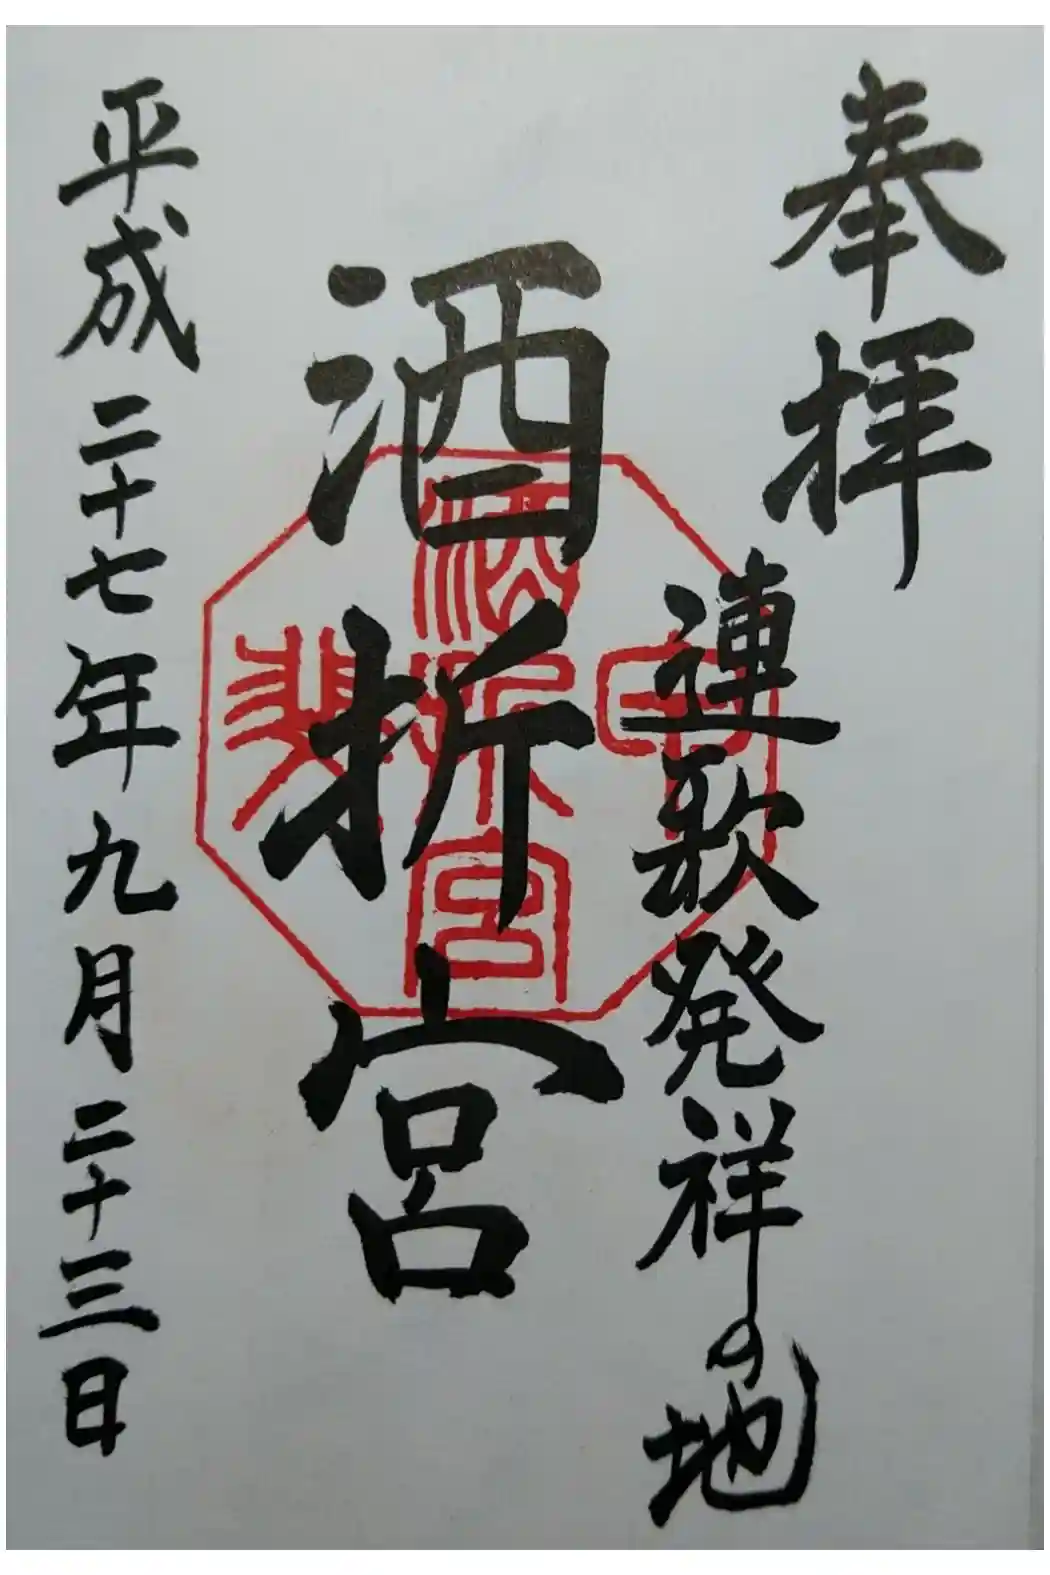 奉拝
連歌発祥の地
酒折宮
甲斐
酒折宮
平成二十七年九月二十三日